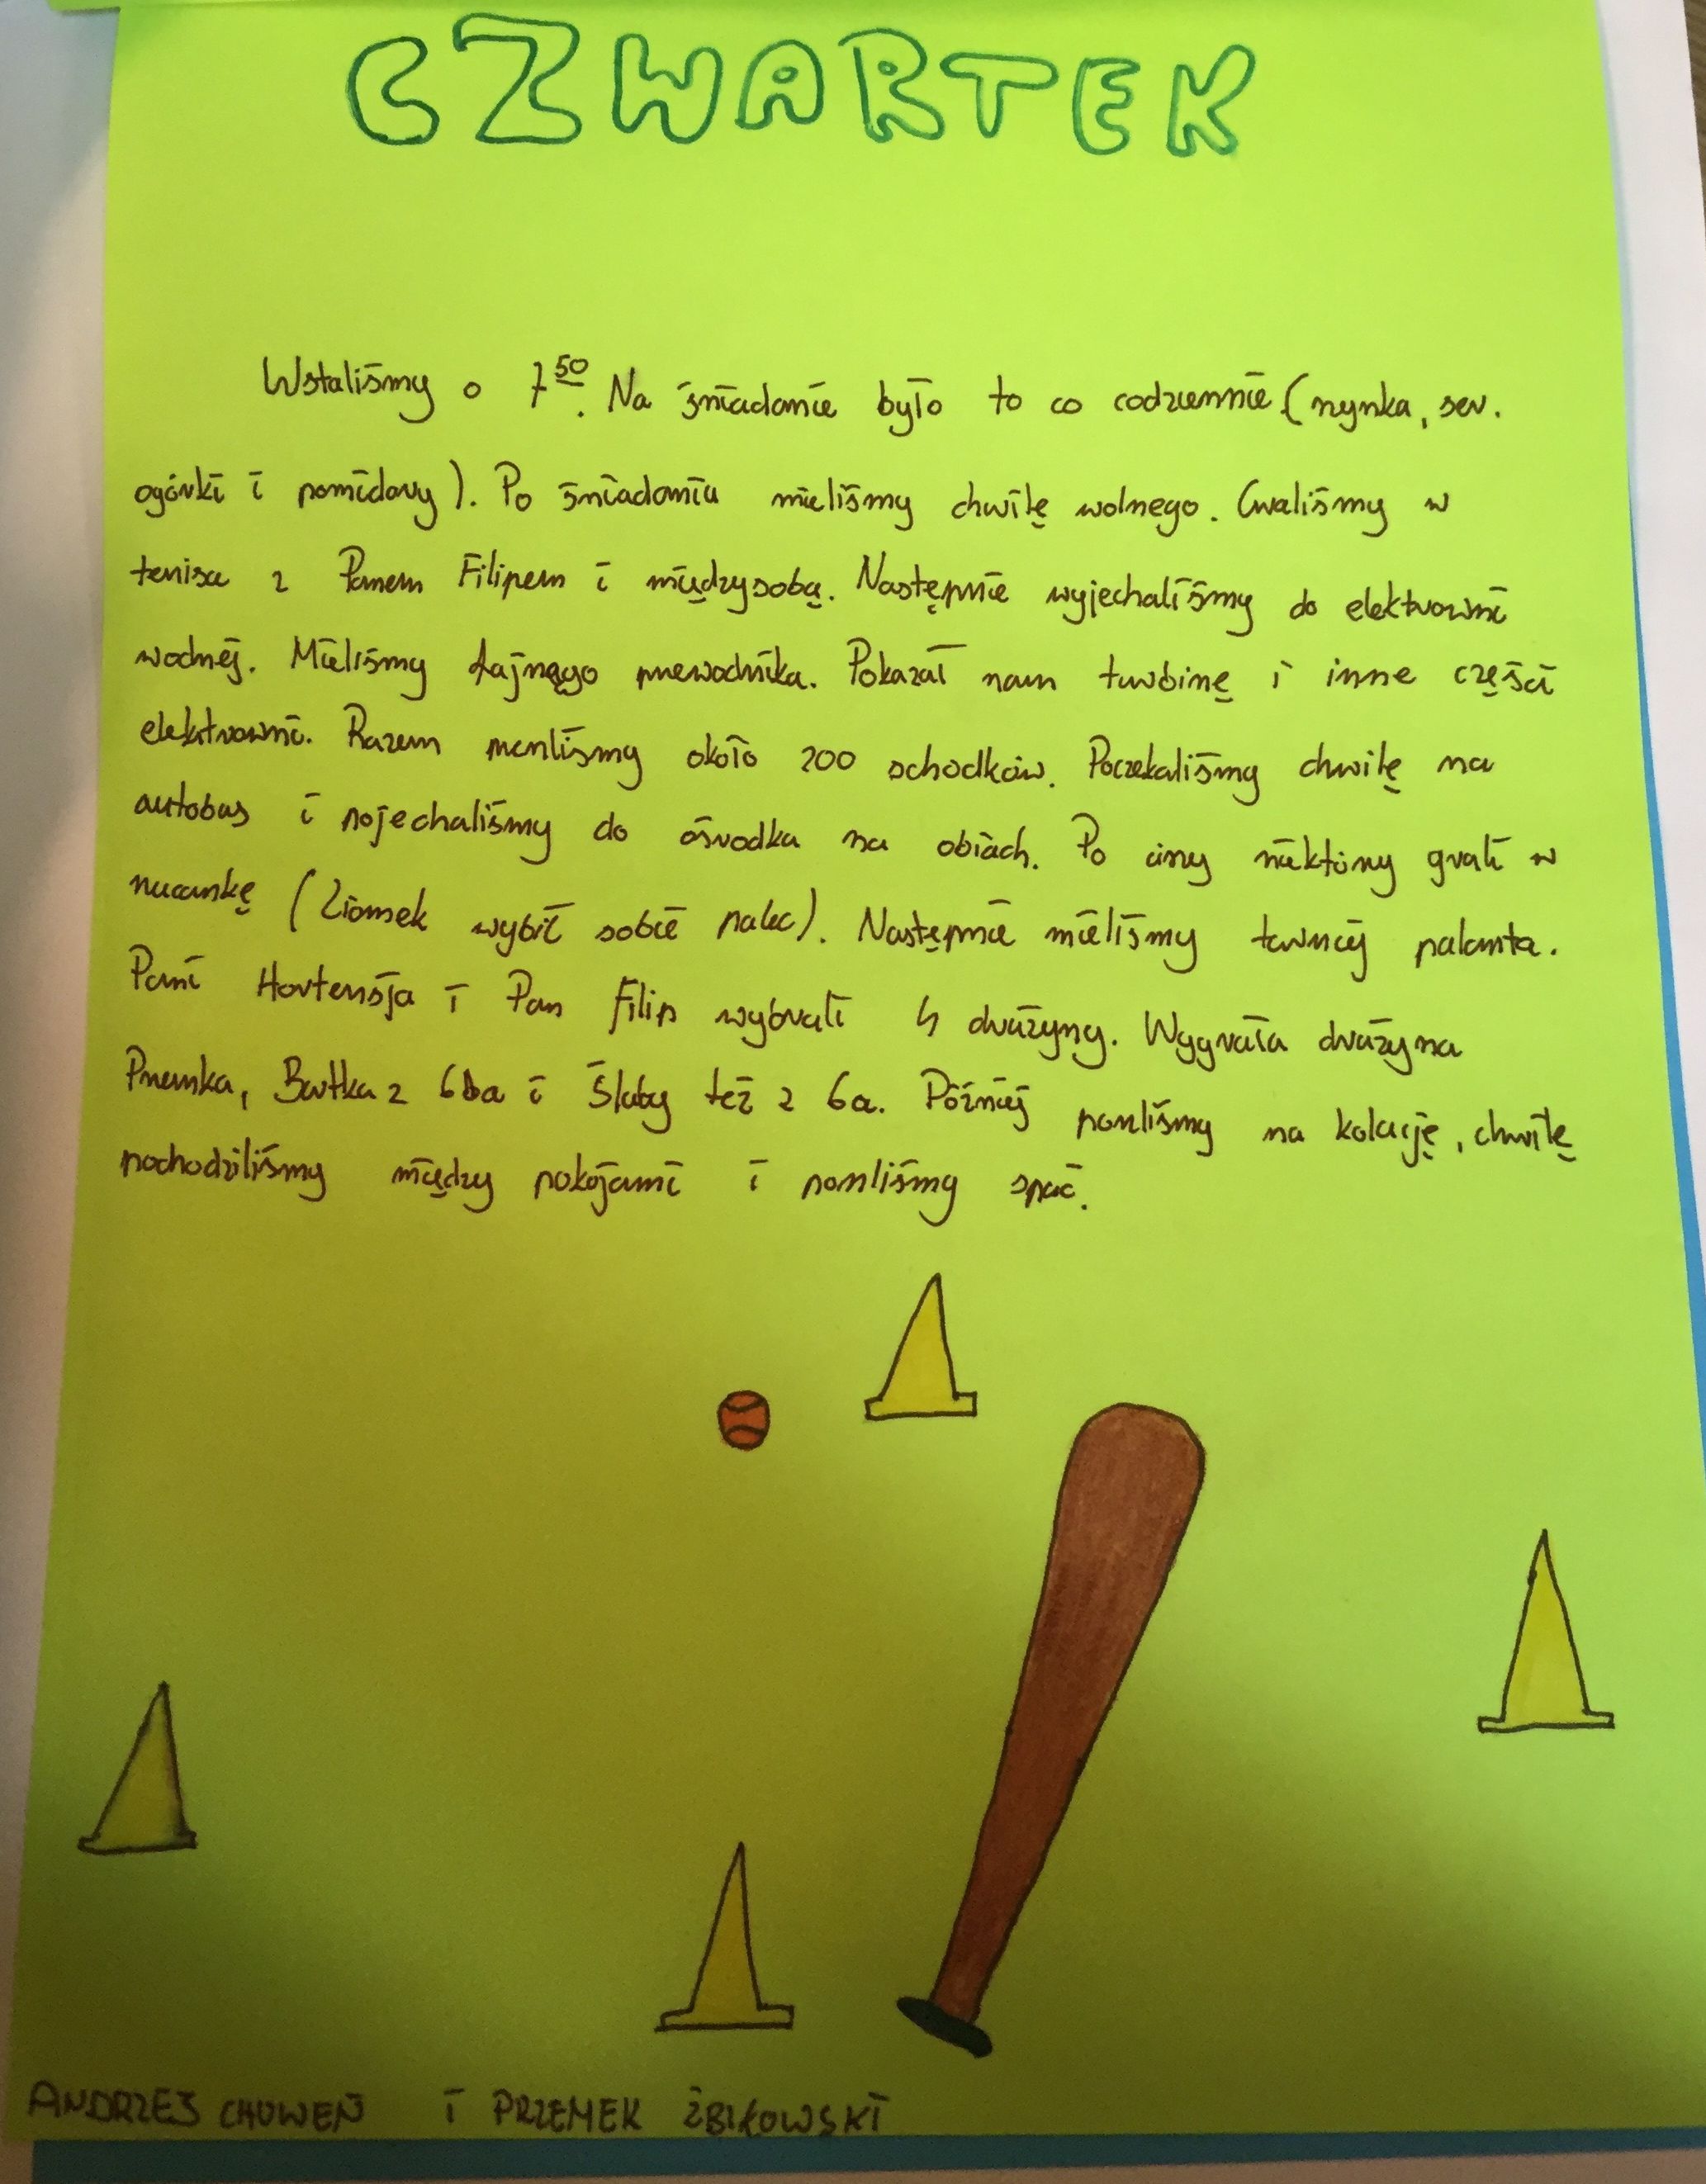 CZWARTEK
Wstaliśmy o 7⁵⁰. Na śniadanie było to co codziennie (szynka, ser.
ogórki i pomidory). Po śniadaniu mieliśmy chwilę wolnego. Graliśmy w
tenisa z Panem Filipem i międzysobą. Następnie wyjechaliśmy do elektrowni
wodnej. Mieliśmy fajnego przewodnika. Pokazał nam turbinę i inne części
elektrowni. Razem przeszliśmy około 200 schodków. Poczekaliśmy chwilę na
autobus i pojechaliśmy do ośrodka na obiach. Po ciszy niektórzy grali w
ruczankę (Ziomek wybił sobie palec). Następnie mieliśmy turniej palanta.
Pani Hortensja i Pan Filip wybrali 4 drużyny. Wygrała drużyna
Przemka, Bartka z 6ba i Śluby też z 6a. Później poszliśmy na kolację, chwilę
pochodziliśmy między pokojami i poszliśmy spać.
ANDRZEJ CHUWEŃ i PRZEMEK ŻBIKOWSKI